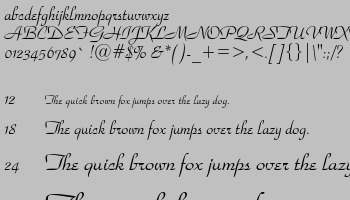 abcdefghijklmnopqrstuvwxyz
ABCDEFGHIJKLMNOPQRSTUVWX
0123456789` !@#$% &*()-_+=>,<.[]{}|\":;/?
12 The quick brown fox jumps over the lazy dog.
18 The quick brown fox jumps over the lazy dog.
24 The quick brown fox jumps over the lazy